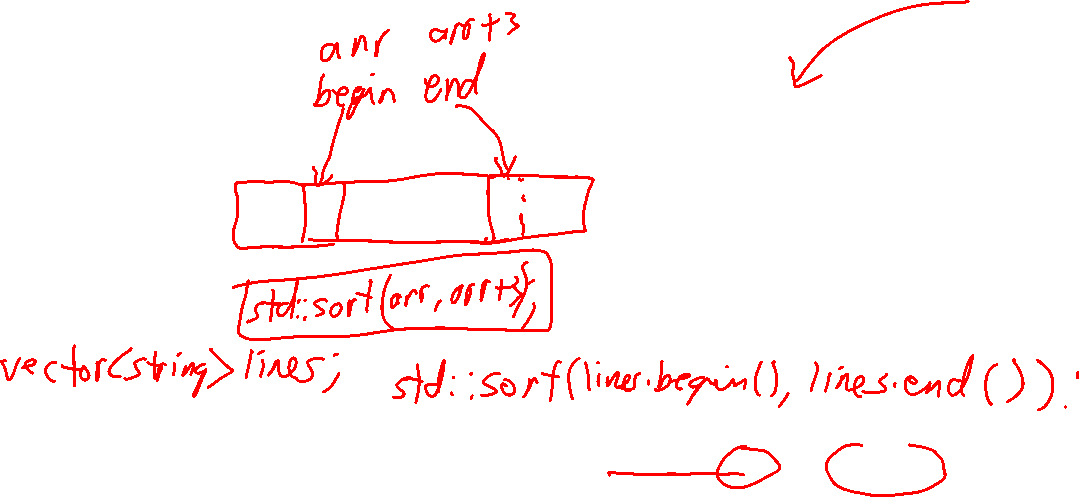 arr arr+3
begin end
std::sort(arr, arr+3);
vector<string> lines;
std::sort(lines.begin(), lines.end()):